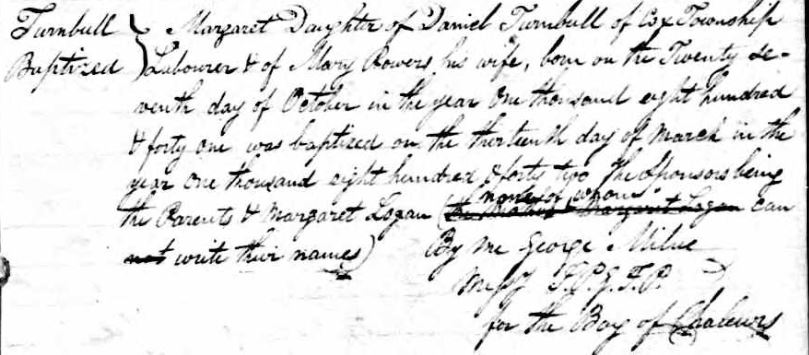 Turnbull } Margaret Daughter of Daniel Turnbull of Cox Township
Baptized } Labourer & of Mary Bowers his wife, born on the Twenty se-
venth day of October in the year One thousand eight hundred
& forty one was baptized on the thirteenth day of March in the
year One thousand eight hundred & forty two The Sponsors being
the Parents & Margaret Logan (none of whom can
not write their names) By me George Milne
Missy S.P.G.F.P.
for the Bay of Chaleurs